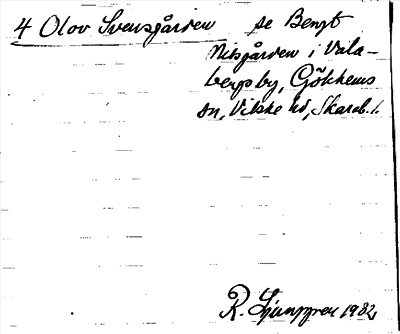 4 Olov Svensgården se Bengt
Nilsgården i Vala-
bergsby, Gökhems
sn, Vilske hd, Skarab.l.
R. Ljunggren 1982